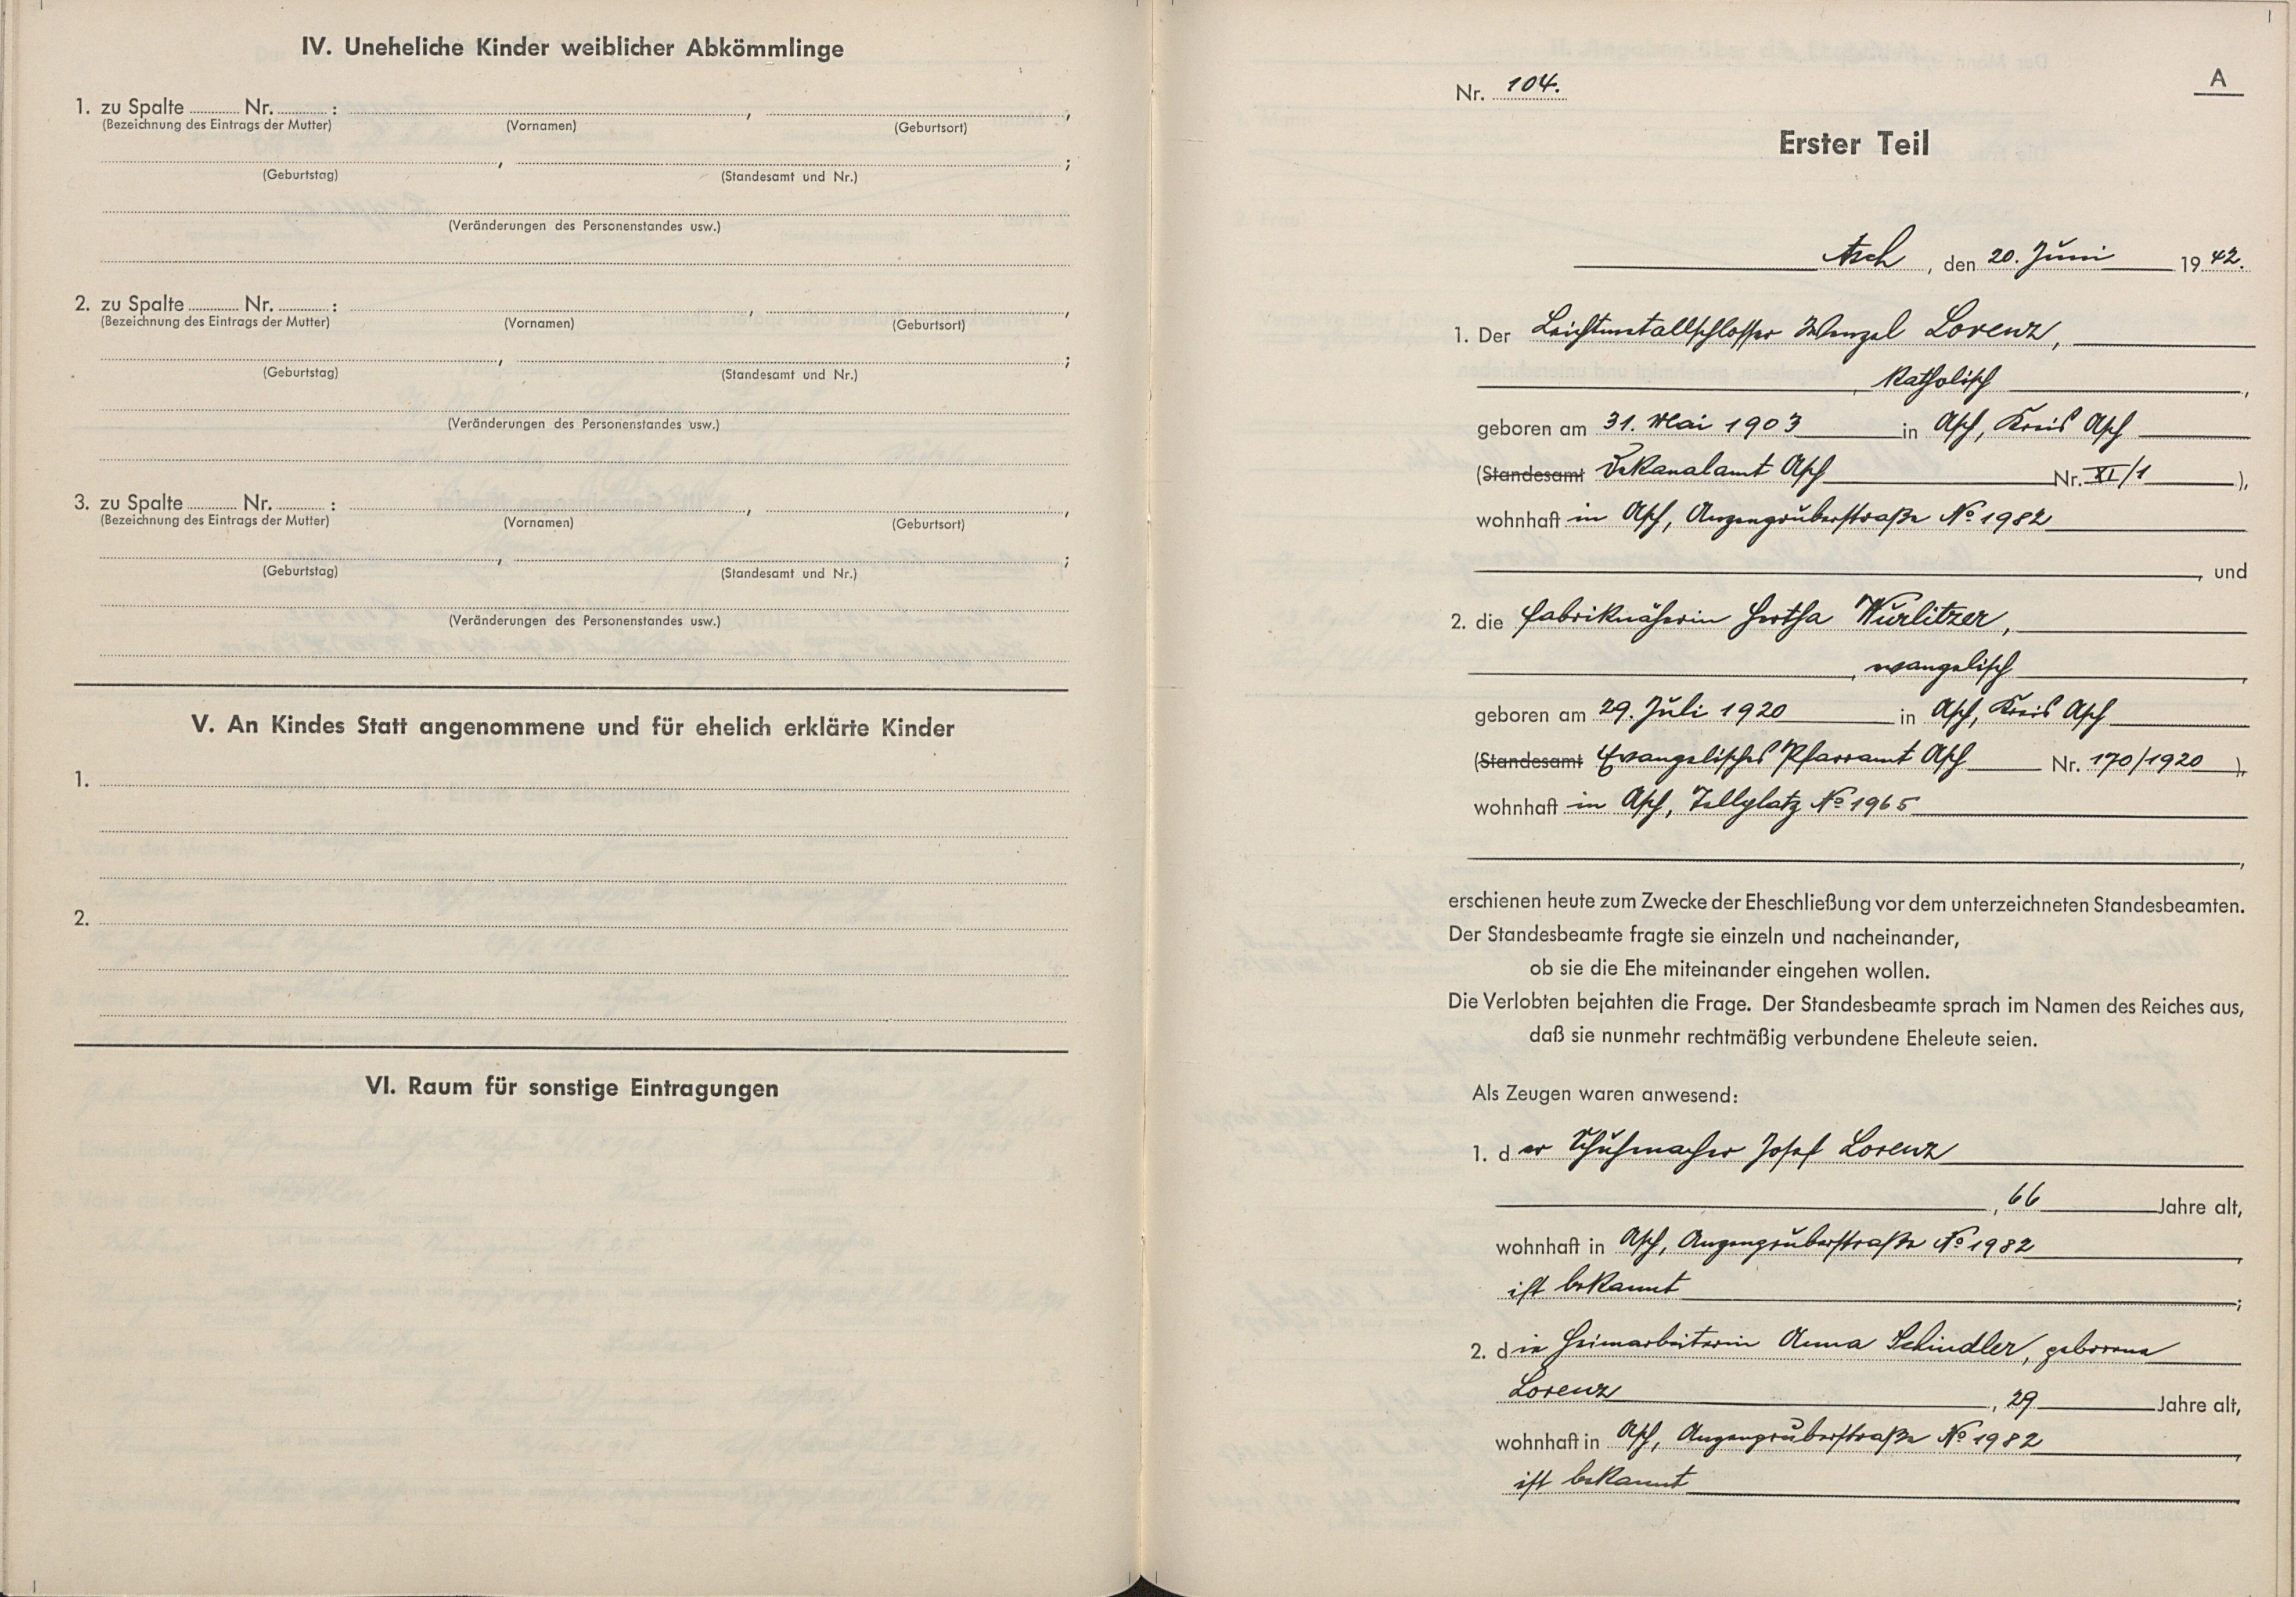 IV. Uneheliche Kinder weiblicher Abkömmlinge
1. zu Spalte ........ Nr. ........ : , ,
(Bezeichnung des Eintrags der Mutter) (Vornamen) (Geburtsort)
, ;
(Geburtstag) (Standesamt und Nr.)
(Veränderungen des Personenstandes usw.)
2. zu Spalte ........ Nr. ........ : , ,
(Bezeichnung des Eintrags der Mutter) (Vornamen) (Geburtsort)
, ;
(Geburtstag) (Standesamt und Nr.)
(Veränderungen des Personenstandes usw.)
3. zu Spalte ........ Nr. ........ : , ,
(Bezeichnung des Eintrags der Mutter) (Vornamen) (Geburtsort)
, ;
(Geburtstag) (Standesamt und Nr.)
(Veränderungen des Personenstandes usw.)
V. An Kindes Statt angenommene und für ehelich erklärte Kinder
1.
2.
VI. Raum für sonstige Eintragungen
A
Nr. 104.
Erster Teil
Asch, den 20. Juni 1942.
1. Der Leichtmetallschlosser Wenzel Lorenz,
, katholisch,
geboren am 31. Mai 1903 in Asch, Kreis Asch
(Standesamt Dekanalamt Asch Nr. XI/1),
wohnhaft in Asch, Anzengruberstraße No 1982
, und
2. die Fabriknäherin Hertha Wurlitzer,
, evangelisch,
geboren am 29. Juli 1920 in Asch, Kreis Asch
(Standesamt Evangelisches Pfarramt Asch Nr. 170/1920),
wohnhaft in Asch, Tellplatz No 1965
,
erschienen heute zum Zwecke der Eheschließung vor dem unterzeichneten Standesbeamten.
Der Standesbeamte fragte sie einzeln und nacheinander,
ob sie die Ehe miteinander eingehen wollen.
Die Verlobten bejahten die Frage. Der Standesbeamte sprach im Namen des Reiches aus,
daß sie nunmehr rechtmäßig verbundene Eheleute seien.
Als Zeugen waren anwesend:
1. der Schuhmacher Josef Lorenz
, 66 Jahre alt,
wohnhaft in Asch, Anzengruberstraße No 1982,
ist bekannt;
2. die Heimarbeiterin Anna Schindler, geborene
Lorenz, 29 Jahre alt,
wohnhaft in Asch, Anzengruberstraße No 1982,
ist bekannt.